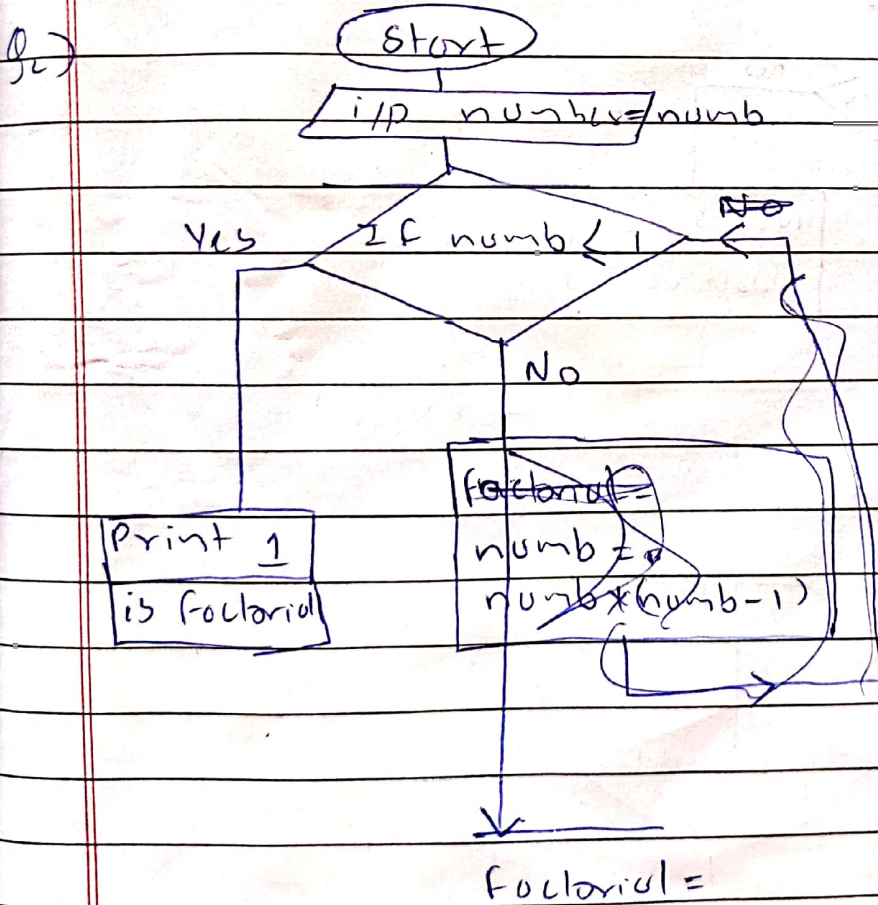 Q2)
Start
i/p number=numb
If numb < 1
No
Yes
No
factorial =
numb =
numb*(numb-1)
Print 1
is factorial
factorial =